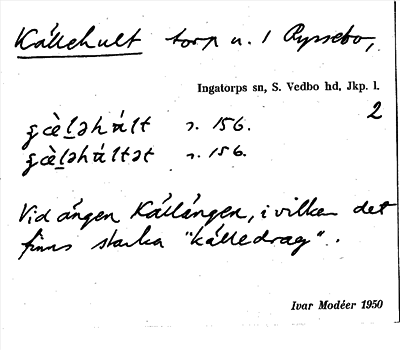 Källehult torp u. 1 Ryssebo,
Ingatorps sn, S. Vedbo hd, Jkp. l.
2
s. 156.
s. 156.
Vid ängen Källängen, i vilken det
finns starka "källedrag".
Ivar Modéer 1950